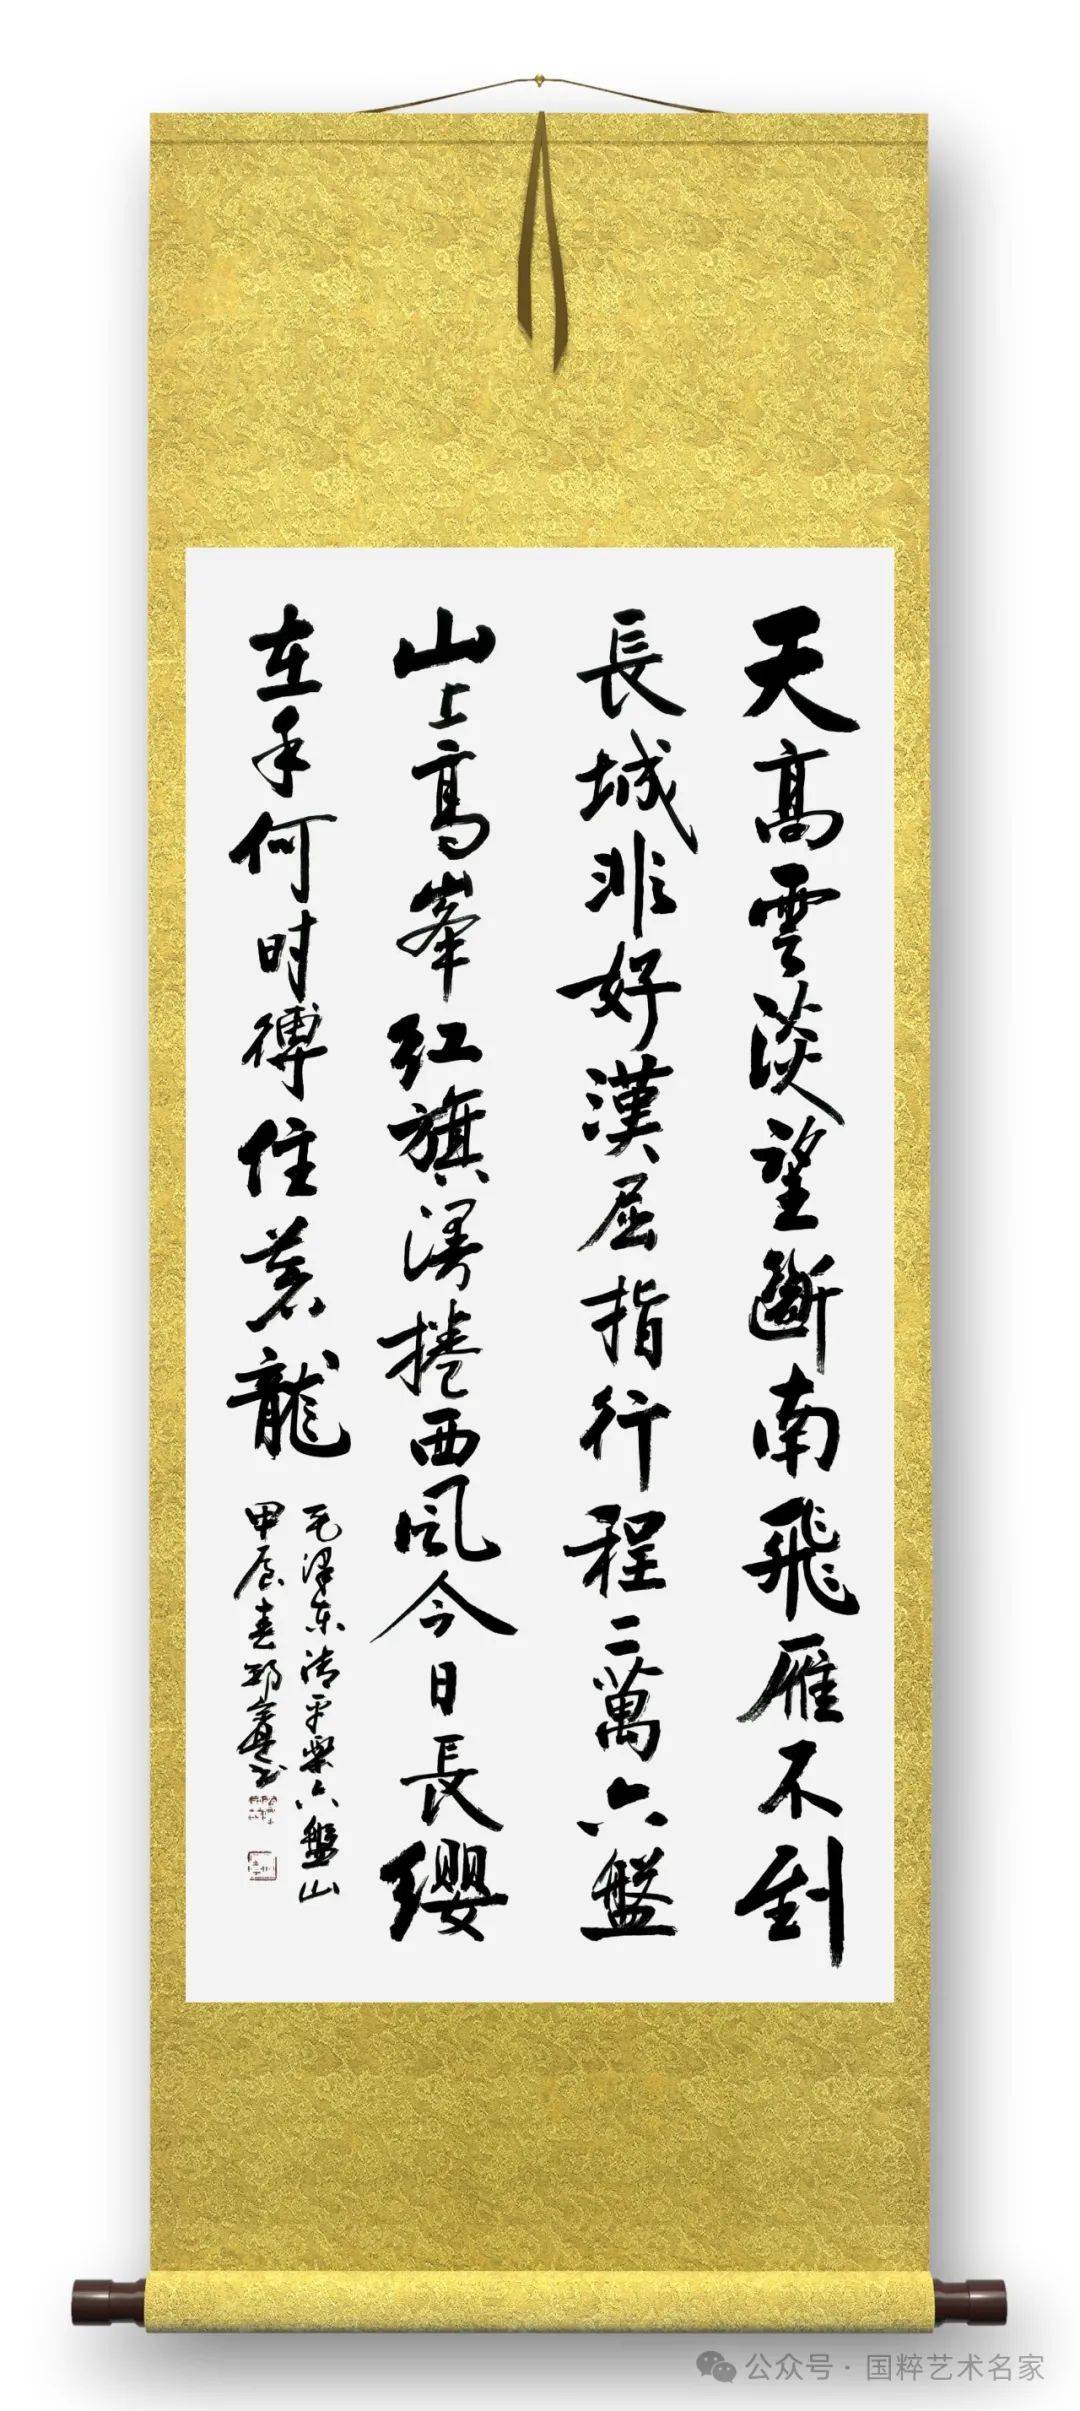 天高雲淡望斷南飛雁不到
長城非好漢屈指行程二萬六盤
山上高峯红旗漫捲西风今日長纓
在手何时縛住蒼龍
毛澤东清平樂六盤山
甲辰春
公众号·国粹艺术名家